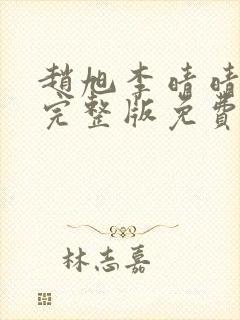 趙旭李晴晴
完整版免費
林志嘉